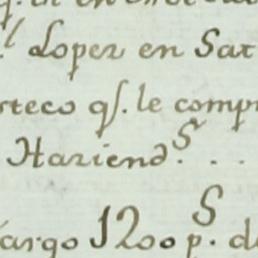 l Lopez en Sat
steco qſ. le comp
Hazienď.ˢ . . .
Cargo 1200 p.ˢ de